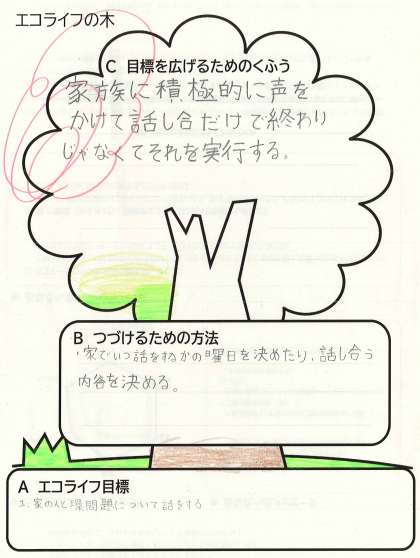 エコライフの木
C 目標を広げるためのくふう
家族に積極的に声を
かけて話し合だけで終わり
じゃなくてそれを実行する。
B つづけるための方法
・家でいつ話をするかの曜日を決めたり、話し合う
内容を決める。
A エコライフ目標
1. 家の人と環境問題について話をする